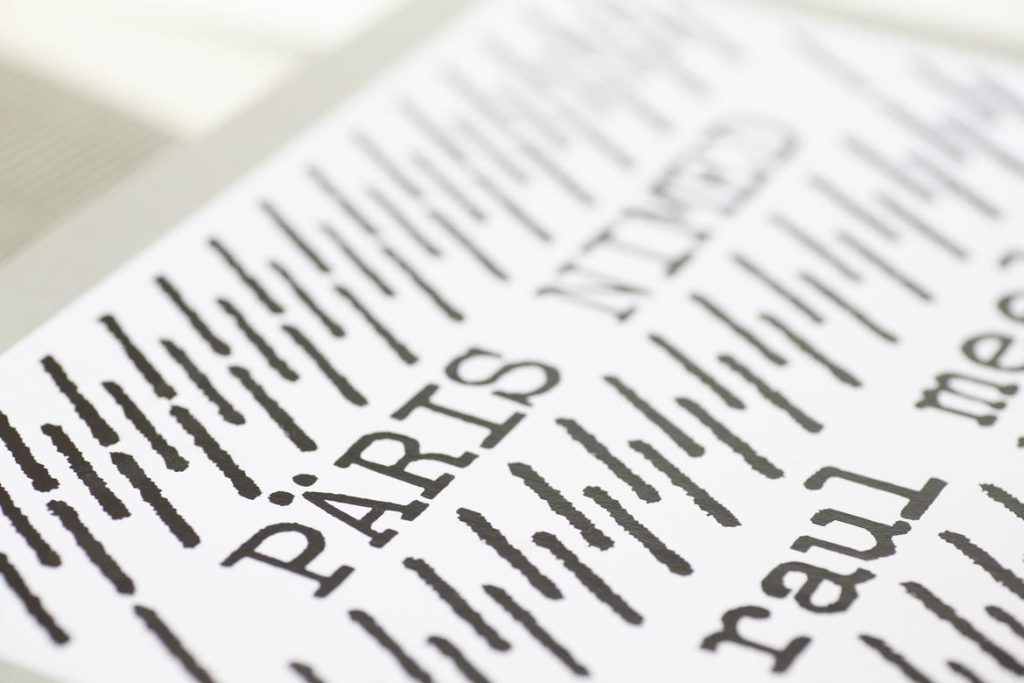 PÄRIS NIMED
raul mee